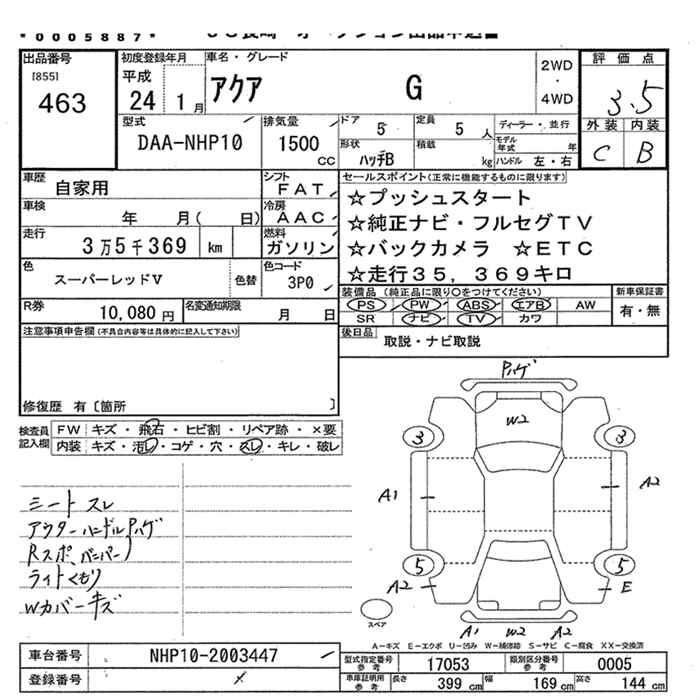 *0005887*
出品番号
[855]
463
初度登録年月
平成
24 1月
車名・グレード
アクア G
2WD
・
4WD
評価点
3.5
外装 内装
C B
型式
DAA-NHP10
排気量
1500
cc
ドア
5
定員
5 人
形状
ハッチB
積載
kg
ディーラー・並行
モデル年式 年
ハンドル 左・右
車歴
自家用
シフト
FAT
車検
年 月( 日)
冷房
AAC
走行
3万5千369 km
燃料
ガソリン
色
スーパーレッドV
色替
色コード
3P0
R券
10,080円
名変通知期限
月 日
セールスポイント(正常に機能するものに限ります)
☆プッシュスタート
☆純正ナビ・フルセグTV
☆バックカメラ ☆ETC
☆走行35,369キロ
装備品 (純正品に限り○をつけてください)
PS PW ABS エアB AW
SR ナビ TV カワ
新車保証書
有・無
後日品
取説・ナビ取説
注意事項申告欄(不具合内容等は具体的に記入して下さい)
修復歴 有〔箇所 〕
検査員
記入欄
FW キズ・飛石・ヒビ割・リペア跡・×要
内装 キズ・汚レ・コゲ・穴・スレ・キレ・破レ
シートスレ
アウターハンドルPハゲ
Rスポ、バンパーP
ライトくもり
Wカバーキズ
Pハゲ
W2
3 3
A1 A2
5 5
A2 E
スペア
A1 W2 A2
A-キズ E-エクボ U-凹み W-補修跡 S-サビ C-腐食 XX-交換済
車台番号
NHP10-2003447
登録番号
型式指定番号
参考
17053
類別区分番号
参考
0005
車庫証明用
参考
長さ
399 cm
幅
169 cm
高さ
144 cm